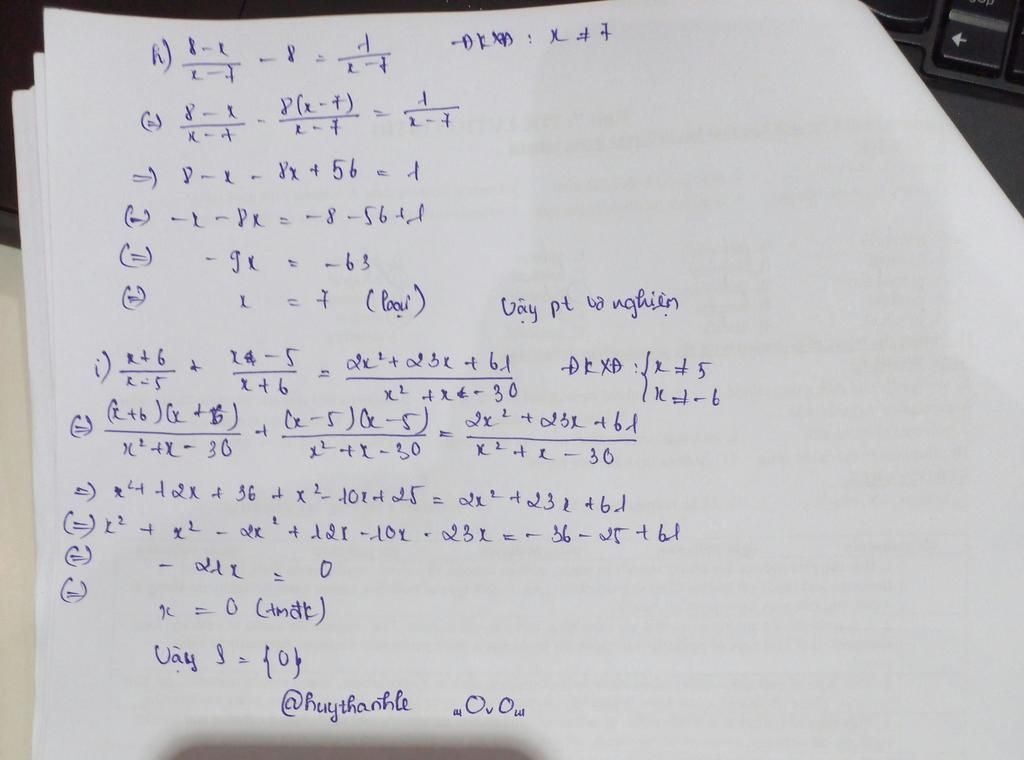 h) (8-x)/(x-7) - 8 = 1/(x-7) ĐKXĐ : x ≠ 7
(=) (8-x)/(x-7) - 8(x-7)/(x-7) = 1/(x-7)
=) 8 - x - 8x + 56 = 1
(=) -x - 8x = -8 - 56 + 1
(=) -9x = -63
(=) x = 7 (loại) Vậy pt vô nghiệm
i) (x+6)/(x-5) + (x-5)/(x+6) = (2x² + 23x + 61)/(x² + x - 30) ĐKXĐ : { x ≠ 5
x ≠ -6
(=) (x+6)(x+6)/(x²+x-30) + (x-5)(x-5)/(x²+x-30) = (2x² + 23x + 61)/(x² + x - 30)
=) x² + 12x + 36 + x² - 10x + 25 = 2x² + 23x + 61
(=) x² + x² - 2x² + 12x - 10x - 23x = -36 - 25 + 61
(=) - 21x = 0
(=) x = 0 (tmđk)
Vậy S = {0}
@huythanhle ωOvOω